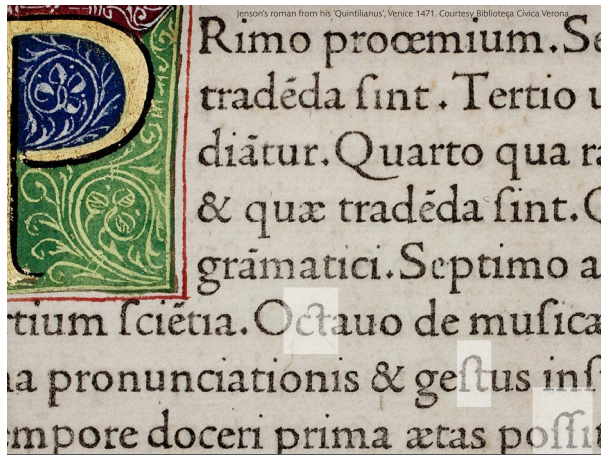 Jenson's roman from his 'Quintilianus', Venice 1471. Courtesy Biblioteca Civica Verona
PRimo proœmium. Se
tradēda ſint. Tertio u
diātur. Quarto qua ra
& quæ tradēda ſint. Q
grāmatici. Septimo a
rtium ſciētia. Octauo de muſica
na pronunciationis & geſtus inſt
empore doceri prima ætas poſſit